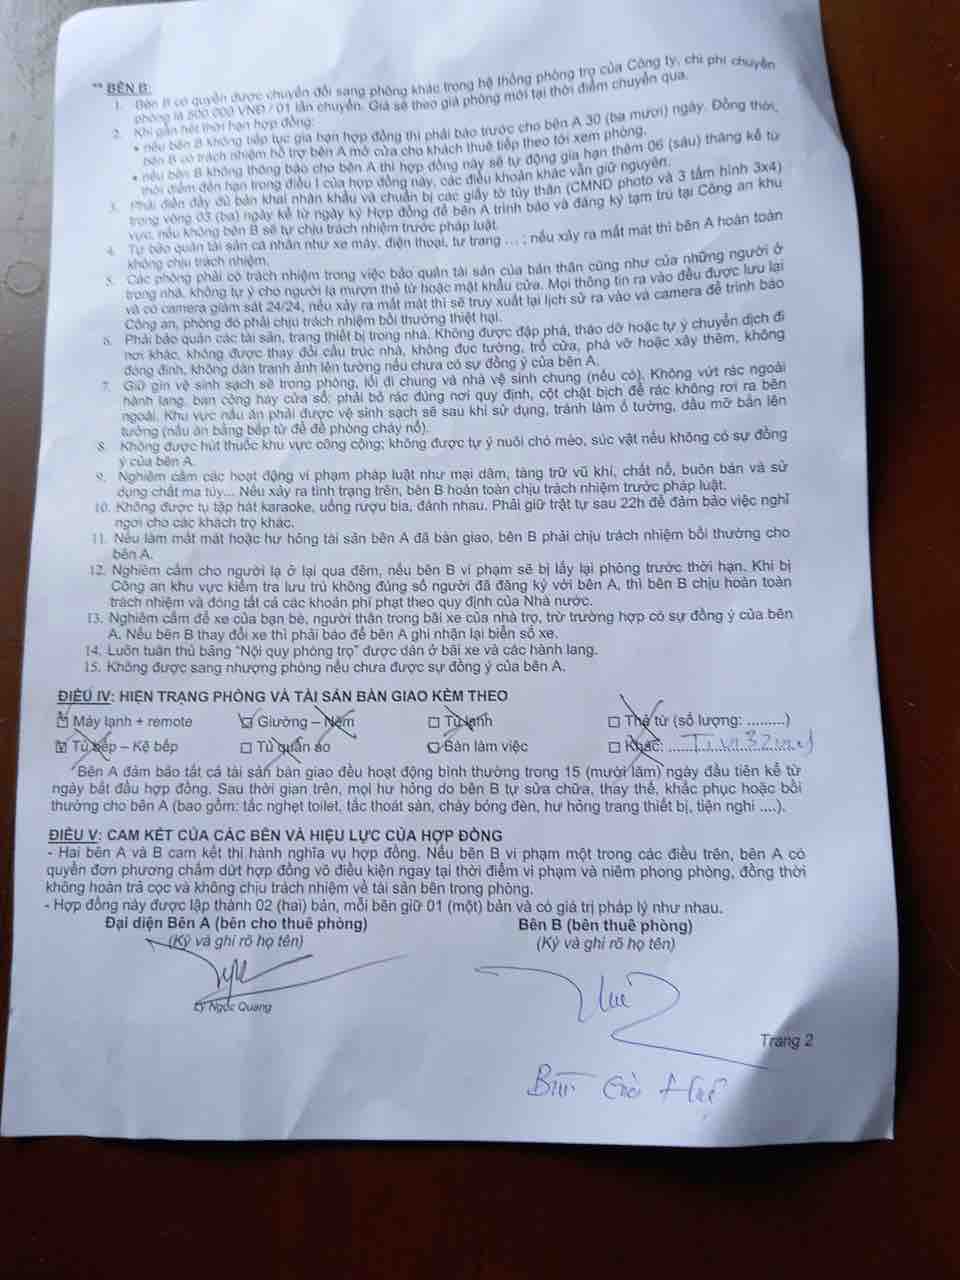 ** BÊN B:
1. Bên B có quyền được chuyển đổi sang phòng khác trong hệ thống phòng trọ của Công ty, chi phí chuyển
phòng là 500.000 VNĐ / 01 lần chuyển. Giá sẽ theo giá phòng mới tại thời điểm chuyển qua.
2. Khi gần hết thời hạn hợp đồng:
• nếu bên B không tiếp tục gia hạn hợp đồng thì phải báo trước cho bên A 30 (ba mươi) ngày. Đồng thời,
bên B có trách nhiệm hỗ trợ bên A mở cửa cho khách thuê tiếp theo tới xem phòng.
• nếu bên B không thông báo cho bên A thì hợp đồng này sẽ tự động gia hạn thêm 06 (sáu) tháng kể từ
thời điểm đến hạn trong điều I của hợp đồng này, các điều khoản khác vẫn giữ nguyên.
3. Phải điền đầy đủ bản khai nhân khẩu và chuẩn bị các giấy tờ tùy thân (CMND photo và 3 tấm hình 3x4)
trong vòng 03 (ba) ngày kể từ ngày ký Hợp đồng để bên A trình báo và đăng ký tạm trú tại Công an khu
vực, nếu không bên B sẽ tự chịu trách nhiệm trước pháp luật.
4. Tự bảo quản tài sản cá nhân như xe máy, điện thoại, tư trang ... ; nếu xảy ra mất mát thì bên A hoàn toàn
không chịu trách nhiệm.
5. Các phòng phải có trách nhiệm trong việc bảo quản tài sản của bản thân cũng như của những người ở
trong nhà, không tự ý cho người lạ mượn thẻ từ hoặc mật khẩu cửa. Mọi thông tin ra vào đều được lưu lại
và có camera giám sát 24/24, nếu xảy ra mất mát thì sẽ truy xuất lại lịch sử ra vào và camera để trình báo
Công an, phòng đó phải chịu trách nhiệm bồi thường thiệt hại.
6. Phải bảo quản các tài sản, trang thiết bị trong nhà. Không được đập phá, tháo dỡ hoặc tự ý chuyển dịch đi
nơi khác, không được thay đổi cấu trúc nhà, không đục tường, trổ cửa, phá vỡ hoặc xây thêm, không
đóng đinh, không dán tranh ảnh lên tường nếu chưa có sự đồng ý của bên A.
7. Giữ gìn vệ sinh sạch sẽ trong phòng, lối đi chung và nhà vệ sinh chung (nếu có). Không vứt rác ngoài
hành lang, ban công hay cửa sổ; phải bỏ rác đúng nơi quy định, cột chặt bịch để rác không rơi ra bên
ngoài. Khu vực nấu ăn phải được vệ sinh sạch sẽ sau khi sử dụng, tránh làm ố tường, dầu mỡ bắn lên
tường (nấu ăn bằng bếp từ để đề phòng cháy nổ).
8. Không được hút thuốc khu vực công cộng; không được tự ý nuôi chó mèo, súc vật nếu không có sự đồng
ý của bên A.
9. Nghiêm cấm các hoạt động vi phạm pháp luật như mại dâm, tàng trữ vũ khí, chất nổ, buôn bán và sử
dụng chất ma túy... Nếu xảy ra tình trạng trên, bên B hoàn toàn chịu trách nhiệm trước pháp luật.
10. Không được tụ tập hát karaoke, uống rượu bia, đánh nhau. Phải giữ trật tự sau 22h để đảm bảo việc nghỉ
ngơi cho các khách trọ khác.
11. Nếu làm mất mát hoặc hư hỏng tài sản bên A đã bàn giao, bên B phải chịu trách nhiệm bồi thường cho
bên A.
12. Nghiêm cấm cho người lạ ở lại qua đêm, nếu bên B vi phạm sẽ bị lấy lại phòng trước thời hạn. Khi bị
Công an khu vực kiểm tra lưu trú không đúng số người đã đăng ký với bên A, thì bên B chịu hoàn toàn
trách nhiệm và đóng tất cả các khoản phí phạt theo quy định của Nhà nước.
13. Nghiêm cấm để xe của bạn bè, người thân trong bãi xe của nhà trọ, trừ trường hợp có sự đồng ý của bên
A. Nếu bên B thay đổi xe thì phải báo để bên A ghi nhận lại biển số xe.
14. Luôn tuân thủ bảng "Nội quy phòng trọ" được dán ở bãi xe và các hành lang.
15. Không được sang nhượng phòng nếu chưa được sự đồng ý của bên A.
ĐIỀU IV: HIỆN TRẠNG PHÒNG VÀ TÀI SẢN BÀN GIAO KÈM THEO
☑ Máy lạnh + remote ☑ Giường – Nệm ☐ Tủ lạnh ☐ Thẻ từ (số lượng: .........)
☑ Tủ bếp – Kệ bếp ☐ Tủ quần áo ☐ Bàn làm việc ☐ Khác:
*Bên A đảm bảo tất cả tài sản bàn giao đều hoạt động bình thường trong 15 (mười lăm) ngày đầu tiên kể từ
ngày bắt đầu hợp đồng. Sau thời gian trên, mọi hư hỏng do bên B tự sửa chữa, thay thế, khắc phục hoặc bồi
thường cho bên A (bao gồm: tắc nghẹt toilet, tắc thoát sàn, cháy bóng đèn, hư hỏng trang thiết bị, tiện nghi ....).
ĐIỀU V: CAM KẾT CỦA CÁC BÊN VÀ HIỆU LỰC CỦA HỢP ĐỒNG
- Hai bên A và B cam kết thi hành nghĩa vụ hợp đồng. Nếu bên B vi phạm một trong các điều trên, bên A có
quyền đơn phương chấm dứt hợp đồng vô điều kiện ngay tại thời điểm vi phạm và niêm phong phòng, đồng thời
không hoàn trả cọc và không chịu trách nhiệm về tài sản bên trong phòng.
- Hợp đồng này được lập thành 02 (hai) bản, mỗi bên giữ 01 (một) bản và có giá trị pháp lý như nhau.
Đại diện Bên A (bên cho thuê phòng) Bên B (bên thuê phòng)
(Ký và ghi rõ họ tên) (Ký và ghi rõ họ tên)
Lý Ngọc Quang
Trang 2